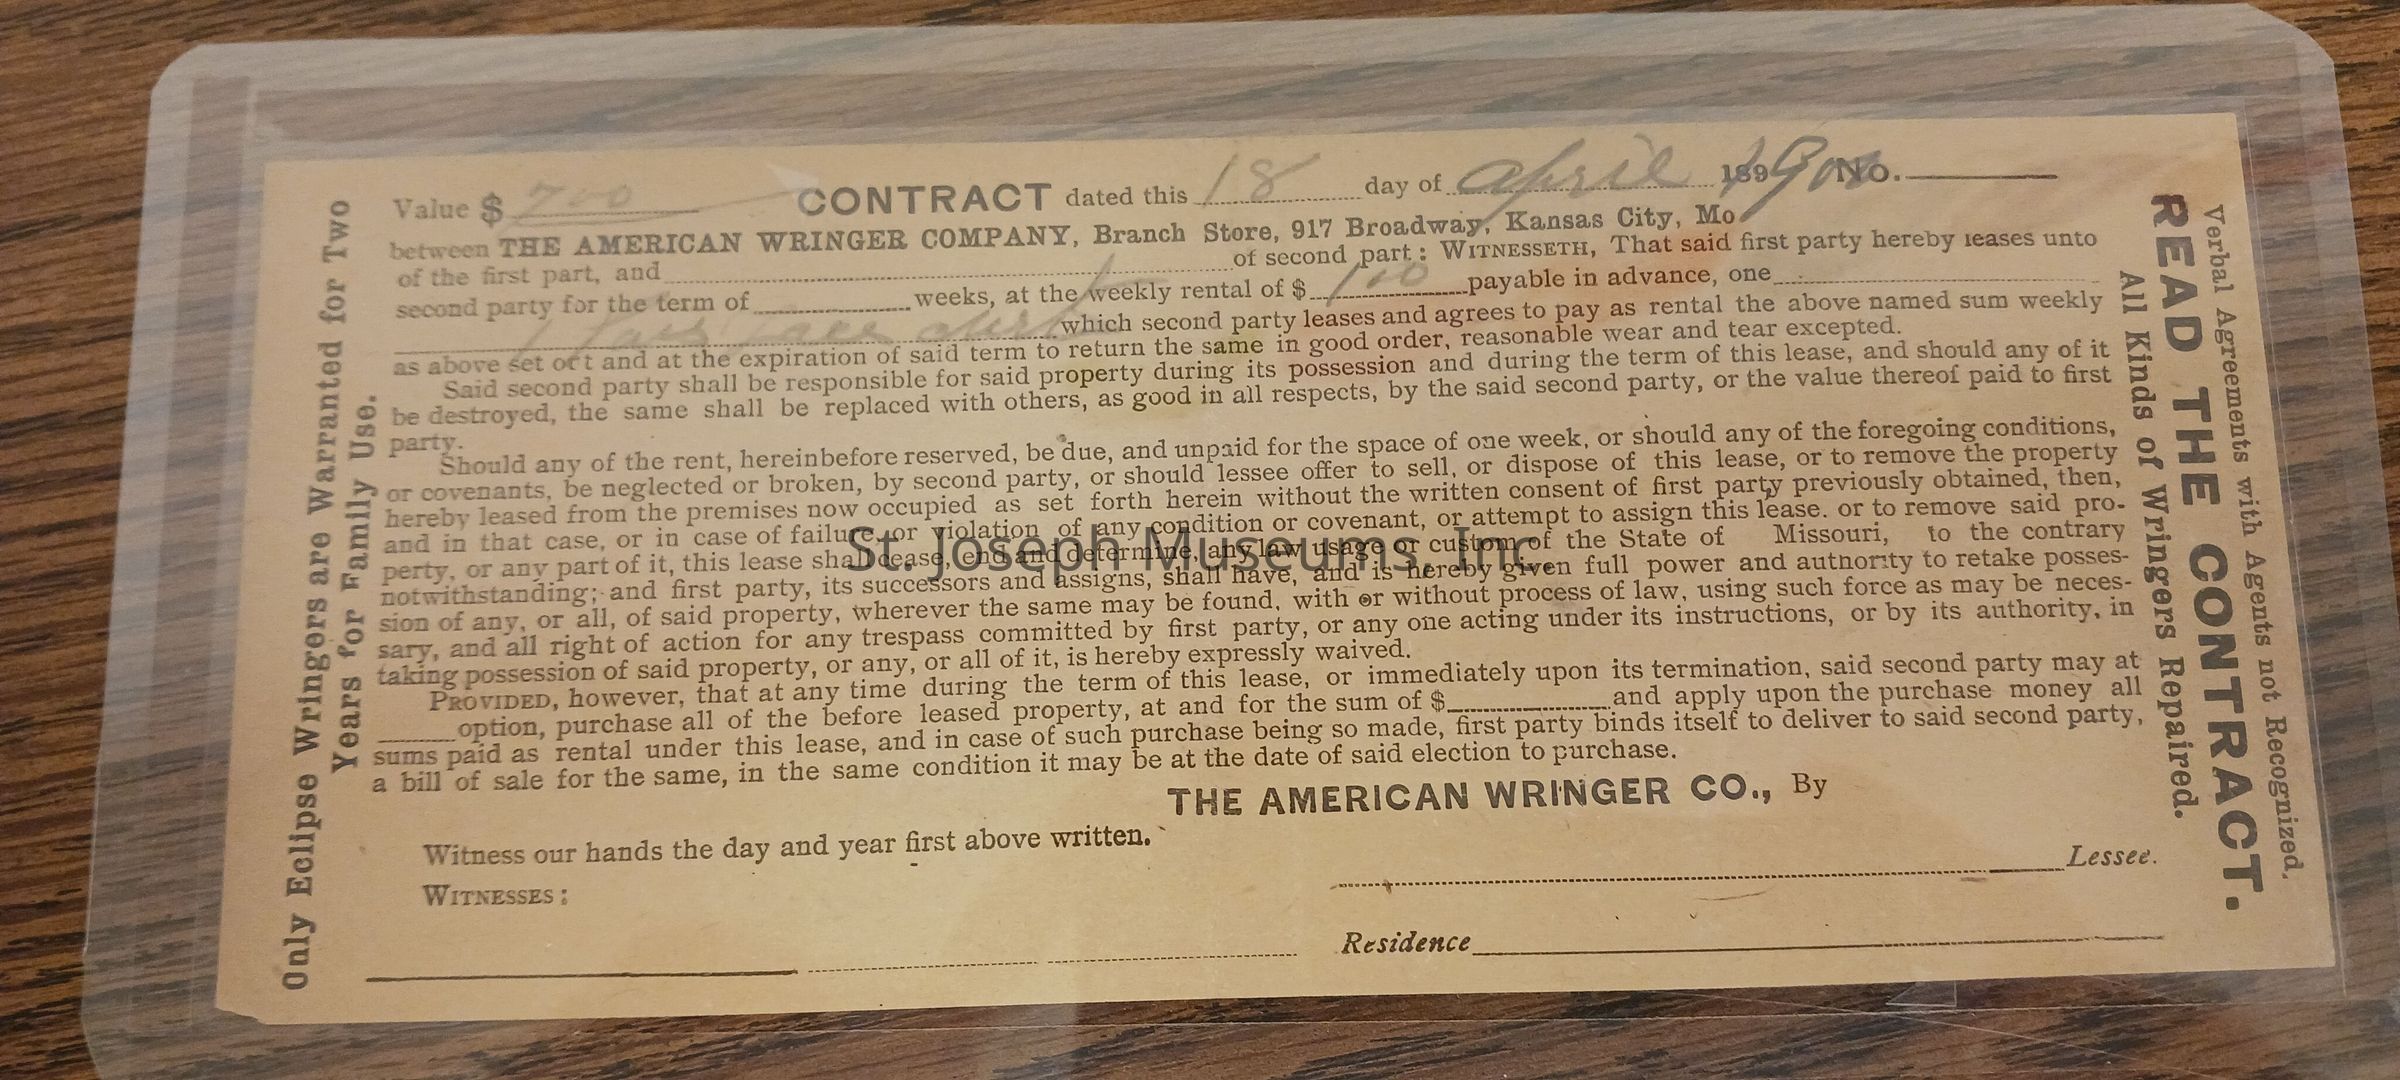 Only Eclipse Wringers are Warranted for Two
Years for Family Use.
Value $ 700 CONTRACT dated this 18 day of April 189 1900 No.
between THE AMERICAN WRINGER COMPANY, Branch Store, 917 Broadway, Kansas City, Mo
of the first part, and of second part: WITNESSETH, That said first party hereby leases unto
second party for the term of weeks, at the weekly rental of $ 100 payable in advance, one
which second party leases and agrees to pay as rental the above named sum weekly
as above set oct and at the expiration of said term to return the same in good order, reasonable wear and tear excepted.
Said second party shall be responsible for said property during its possession and during the term of this lease, and should any of it
be destroyed, the same shall be replaced with others, as good in all respects, by the said second party, or the value thereof paid to first
party.
Should any of the rent, hereinbefore reserved, be due, and unpaid for the space of one week, or should any of the foregoing conditions,
or covenants, be neglected or broken, by second party, or should lessee offer to sell, or dispose of this lease, or to remove the property
hereby leased from the premises now occupied as set forth herein without the written consent of first party previously obtained, then,
and in that case, or in case of failure, or violation of any condition or covenant, or attempt to assign this lease. or to remove said pro-
perty, or any part of it, this lease shall cease, end and determine, any law usage or custom of the State of Missouri, to the contrary
notwithstanding; and first party, its successors and assigns, shall have, and is hereby given full power and authority to retake posses-
sion of any, or all, of said property, wherever the same may be found, with or without process of law, using such force as may be neces-
sary, and all right of action for any trespass committed by first party, or any one acting under its instructions, or by its authority, in
taking possession of said property, or any, or all of it, is hereby expressly waived.
PROVIDED, however, that at any time during the term of this lease, or immediately upon its termination, said second party may at
option, purchase all of the before leased property, at and for the sum of $ and apply upon the purchase money all
sums paid as rental under this lease, and in case of such purchase being so made, first party binds itself to deliver to said second party,
a bill of sale for the same, in the same condition it may be at the date of said election to purchase.
THE AMERICAN WRINGER CO., By
Witness our hands the day and year first above written.
Lessee.
WITNESSES:
Residence
All Kinds of Wringers Repaired.
READ THE CONTRACT.
Verbal Agreements with Agents not Recognized.
St. Joseph Museums, Inc.